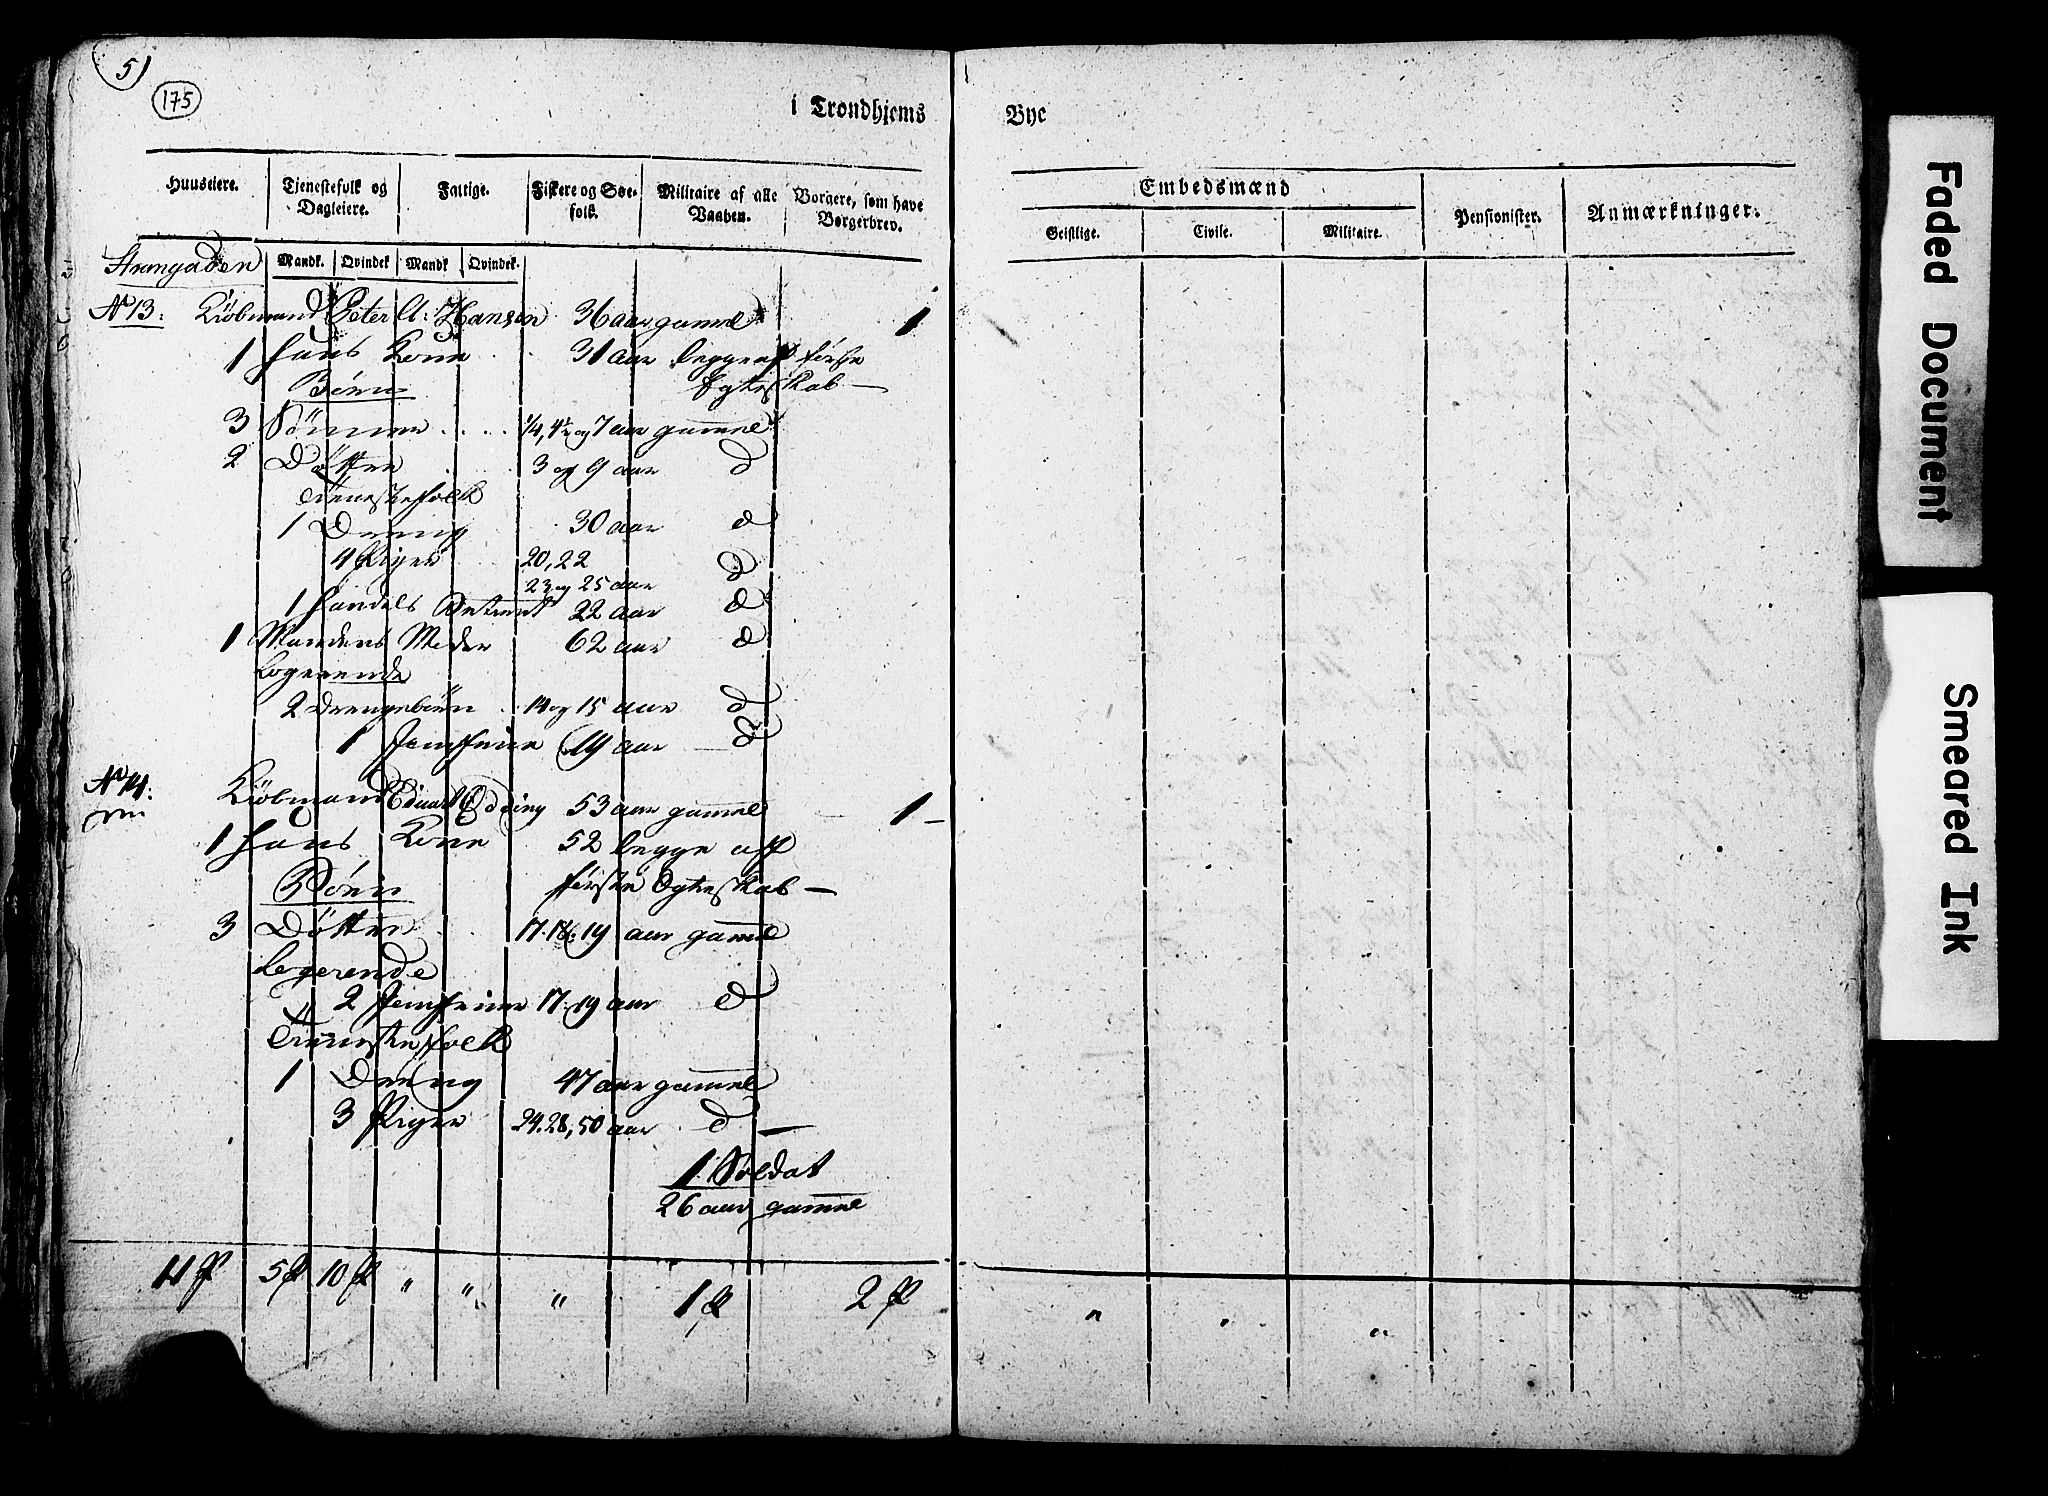 5
175
i Trondhjems Bye
Huuseiere. Tjenestefolk og Dagleiere. Fattige. Fiskere og Søefolk. Militaire af alle Vaaben. Borgere, som have Borgerbrev. Embedsmænd Pensionister. Anmærkninger.
Geistlige. Civile. Militaire.
Mandk. Qvindek Mandk Qvindek.
Strangaden
No 13: Kiöbmand Peter A: Hansen 36 aar gamel 1
1 Hans Kone 31 aar begge af første
Egteskab —
Börn
3 Sönner .... 1/4, 4½ og 7 aar gamel
2 Döttre .... 3 og 9 aar d
Tienestefolk
1 Dreng 30 aar d
4 Piger 20, 22
23 og 25 aar d
1 Handels Betient 22 aar d
1 Mandens Moder 62 aar d
Logerende
2 Drengebörn 14 og 15 aar d
1 Jomfrue 19 aar d
No 14: Kiöbmand Eduart 53 aar gamel 1 —
1 Hans Kone 52 begge af
förste Egteskab —
Börn
3 Döttre 17. 18. 19 aar gamel
Logerende
2 Jomfruer 17. 19 aar d
Tienestefolk
1 Dreng 47 aar gamel
3 Piger 24. 28, 50 aar d —
1 Soldat
26 aar gamel
11 P 5 P 10 P " " " 1 P 2 P " " "
Faded Document
Smeared Ink